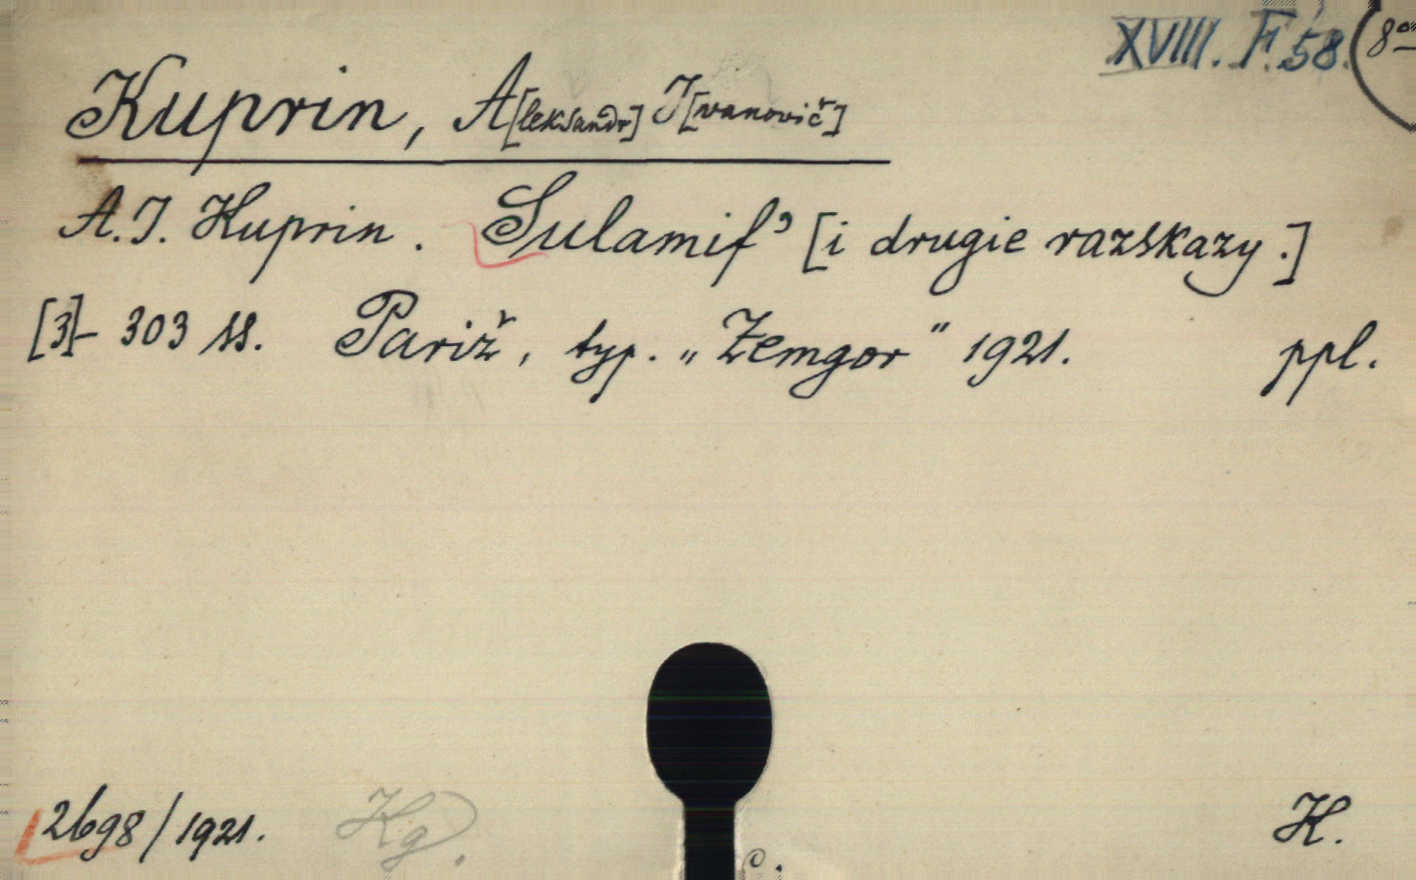 XVIII. F. 58. (8°
Kuprin, A[leksandr] I[vanovič]
A. I. Kuprin. Sulamif' [i drugie razskazy.]
[3]- 303 ss. Pariž, typ. „Zemgor" 1921. ppl.
2698/1921. Kg. H.